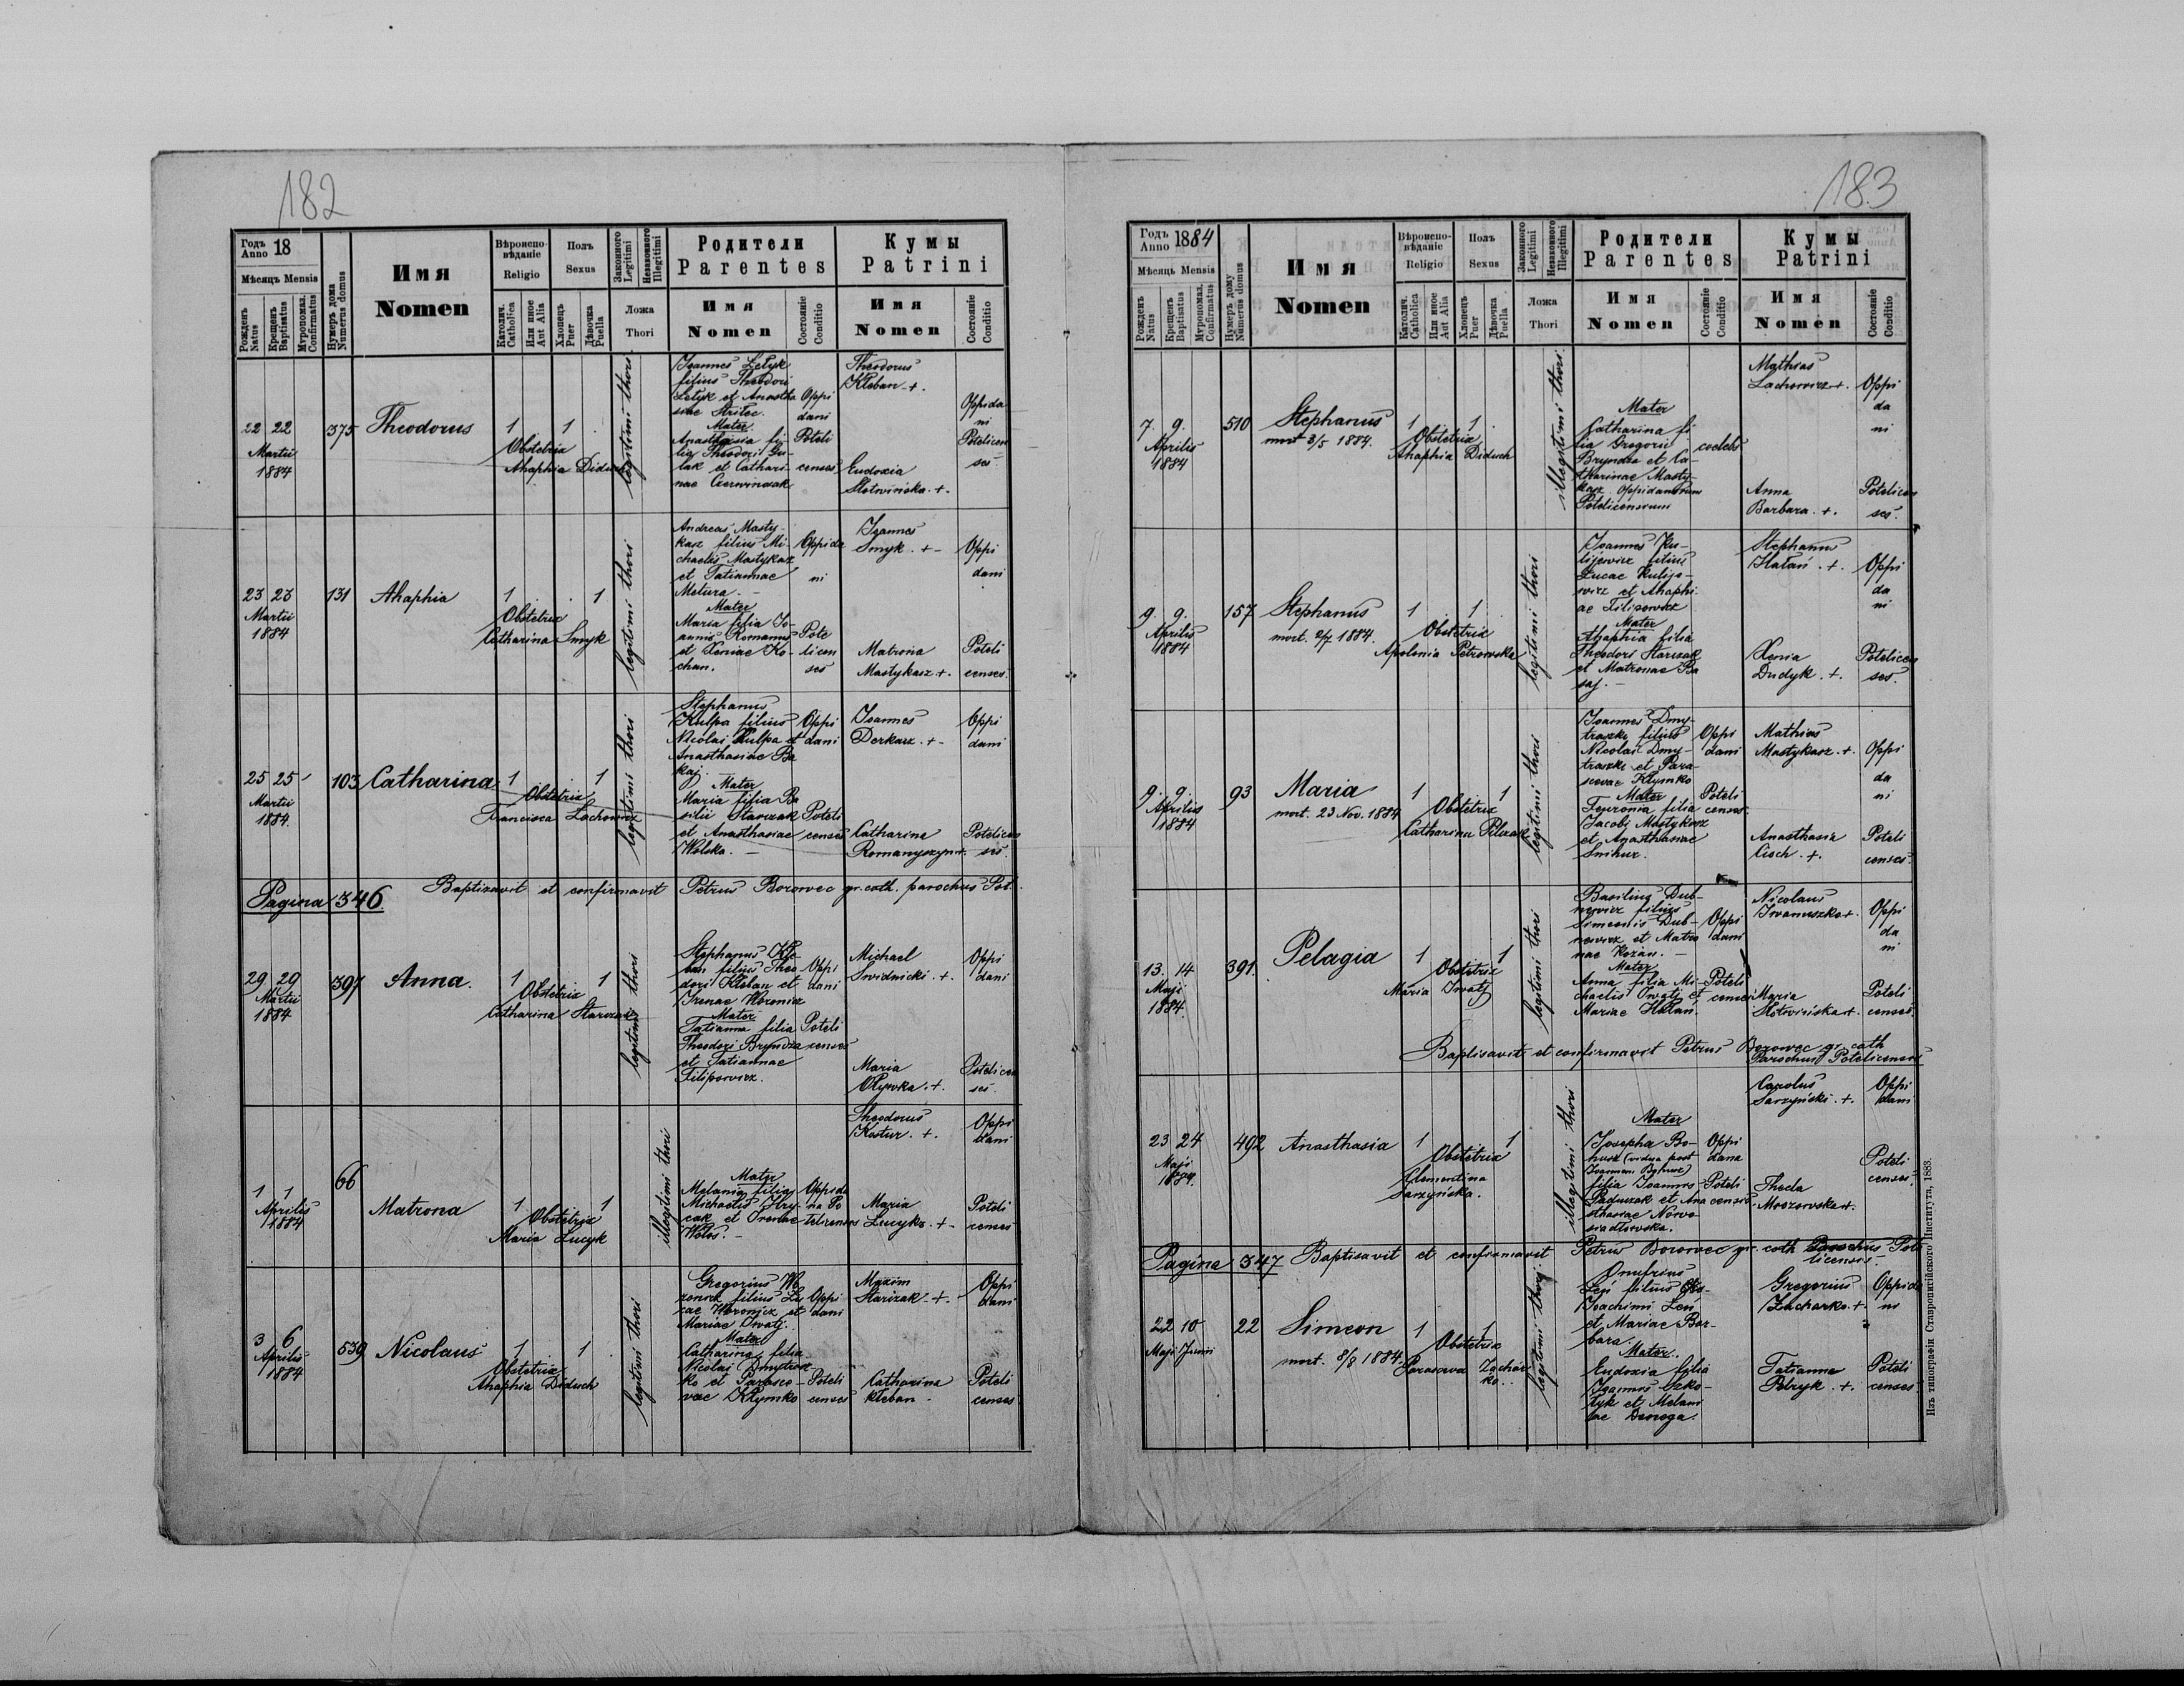 182
Годъ Anno 18
Мѣсяцъ Mensis
Рожденъ Natus
Крещенъ Baptisatus
Мѵропомаз. Confirmatus
Нумеръ дома Numerus domus
Имя
Nomen
Вѣроиспо-
вѣданіе
Religio
Католич. Catholica
Или иное Aut Alia
Полъ
Sexus
Хлопецъ Puer
Дѣвочка Puella
Законного Legitimi
Незаконного Illegitimi
Ложа
Thori
Родители
Parentes
Имя
Nomen
Состояніе Conditio
Кумы
Patrini
Имя
Nomen
Состояніе Conditio
22 22
Martii
1884
375
Theodorus
1
1
Obstetrix
Ahaphia Diduch
legitimi thori
Joannes Letyk
filius Theodori
Letyk et Anastha
siae Stritec.
Mater
Anasthasia fi-
lia Theodori Gu-
lak et Cathari-
nae Czerwinczak
Oppi
dani
Poteli
censes
Theodorus
Kleban +.
Eudoxia
Slotwińska +.
Oppida
ni
Potelicen
ses
23 23
Martii
1884
131
Ahaphia
1
1
Obstetrix
Catharina Smyk
legitimi thori
Andreas Masty-
kasz filius Mi-
chaelis Mastykasz
et Tatiannae
Mater
Maria filia Jo-
annis Romanus
et Xeniae Ko-
chan.
Oppida
ni
Pote
licen
ses
Joannes
Smyk. +
Matrona
Mastykasz +.
Oppi
dani
Poteli
censes.
25 25
Martii
1884.
103
Catharina
1
1
Obstetrix
Francisca Lachowicz
legitimi thori
Stephanus
Kulpa filius
Nicolai Kulpa et
Anasthasiae Ba
kaj.
Mater
Maria filia Ba
silii Starczak
et Anasthasiae
Wolska.
Oppi
dani
Poteli
censes
Joannes
Derkacz. +
Catharina
Romanyszyn +.
Oppi
dani
Potelicen
ses.
Pagina 346.
Baptisavit et confirmavit Petrus Borowec gr. cath. parochus Pot.
29 29
Martii
1884
397
Anna.
1
1
Obstetrix
Catharina Starczak
legitimi thori
Stephanus Kle-
ban filius Theo
dori Kleban et
Irenae Woronicz
Mater
Tatianna filia
Theodori Bryndza
et Tatiannae
Filipowicz.
Oppi
dani
Poteli
censes
Michael
Swidnicki. +
Maria
Oppi
dani
Potelicen
ses
1 1
Aprilis
1884
66
Matrona
1
1
Obstetrix
Maria Lucyk
illegitimi thori
Mater
Melania filia
Michaelis Hry-
cak et Irenae
Wolos.
Oppida
na Po
telicensis
Theodorus
Kostur. +.
Maria
Lucyk. +
Oppi
dani
Poteli
censes
3 6
Aprilis
1884
539
Nicolaus
1
1
Obstetrix
Ahaphia Diduch
legitimi thori
Gregorius Wo
ronicz filius Lu
cae Woronicz et
Mariae Iwatj.
Mater
Catharina filia
Nicolai Dmytrasz
ko et Parasce-
vae Klymko
Oppi
dani
Poteli
censes
Maxim
Starczak +.
Catharina
Kleban
Oppi
dani
Poteli
censes
183
Годъ Anno 1884
Мѣсяцъ Mensis
Рожденъ Natus
Крещенъ Baptisatus
Мѵропомаз. Confirmatus
Нумеръ дому Numerus domus
Имя
Nomen
Вѣроиспо-
вѣданіе
Religio
Католич. Catholica
Или иное Aut Alia
Полъ
Sexus
Хлопецъ Puer
Дѣвочка Puella
Законного Legitimi
Незаконного Illegitimi
Ложа
Thori
Родители
Parentes
Имя
Nomen
Состояніе Conditio
Кумы
Patrini
Имя
Nomen
Состояніе Conditio
7. 9.
Aprilis
1884
510
Stephanus
mort 3/5 1884.
1
1
Obstetrix
Ahaphia Diduch
illegitimi thori
Mater
Catharina fi-
lia Gregorii
Bryndza et Ca-
tharinae Masty-
kasz. Oppidanorum
Potelicensium
coelebs
Mathias
Lachowicz +.
Anna
Barbara. +.
Oppi
da
ni
Potelicen
ses.
9. 9.
Aprilis
1884
157
Stephanus
mort. 2/7 1884.
1
1
Obstetrix
Apolonia Petrowska
legitimi thori
Joannes Ku-
lijewicz filius
Lucae Kulije-
wicz et Ahaphi
ae Filipowicz
Mater
Ahaphia filia
Theodori Starczak
et Matronae Ba
saj.
Stephanus
Halan. +.
Xenia
Dudyk. +.
Oppi
da
ni
Potelicen
ses.
9. 9.
Aprilis
1884
93
Maria
mort. 23 Nov. 1884
1
1
Obstetrix
Catharina Pilczak
legitimi thori
Joannes Dmy-
traszko filius
Nicolai Dmy-
traszko et Para-
scevae Klymko
Mater
Fevronia filia
Jacobi Mastykasz
et Anasthasiae
Snihur.
Oppi
dani
Poteli
censes.
Mathias
Mastykasz. +.
Anasthasia
Cioch. +.
Oppi
da
ni
Poteli
censes.
13. 14
Maji
1884.
391.
Pelagia
1
1
Obstetrix
Maria Iwatj
legitimi thori
Basilius Dub-
newicz filius
Simeonis Dub-
newicz et Matro
nae Kozan.
Mater
Anna filia Mi-
chaelis Iwatj et
Mariae Halan.
Oppi
dani
Poteli
censes
Nicolaus
Iwanuszko +.
Maria
Slotwińska +.
Oppi
da
ni
Poteli
censes.
Baptisavit et confirmavit Petrus Borowec gr. cath
Parochus Potelicensis
23 24
Maji
1884.
492
Anasthasia
1
1
Obstetrix
Clementina
Sarzyńska.
illegitimi thori
Mater
Josepha Bo-
husz (vidua post
Joannem Bohusz)
filia Joannis
Paduczak et Ana
sthasiae Nowo-
siadlowska.
Oppi
dana
Poteli
censis.
Carolus
Sarzyński. +.
Theda
Mosorowska +.
Oppi
dani
Poteli
censes.
Pagina 347 Baptisavit et confirmavit Petrus Borowec gr. cath Parochus Pote
licensis.
22 10
Maji Junii
22
Simeon
mort. 8/8 1884.
1
1
Obstetrix
Parasceva Zachar
ko.
legitimi thori
Onufrius
Leń filius
Joachimi Leń
et Mariae Bar-
bara.
Mater.
Eudoxia filia
Joannis Szko-
lyk et Melani
ae Dzioga.
Gregorius
Zacharko. +.
Tatianna
Petryk. +.
Oppida
ni
Poteli
censes
Изъ типографіи Ставропигійского Института, 1883.